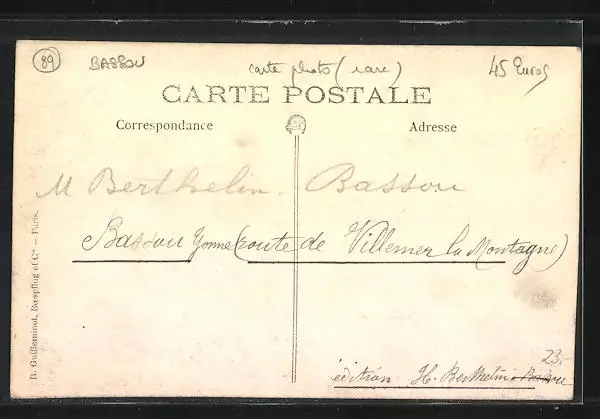 89 BASSOU carte photo (rare) 45 Euros
CARTE POSTALE
Correspondance Adresse
M Berthelin. Bassou
Bassou Yonne (route de Villemer la Montagne)
R. Guilleminot, Bœspflug et Cie — Paris.
23,-
édition H. Berthelin Bassou